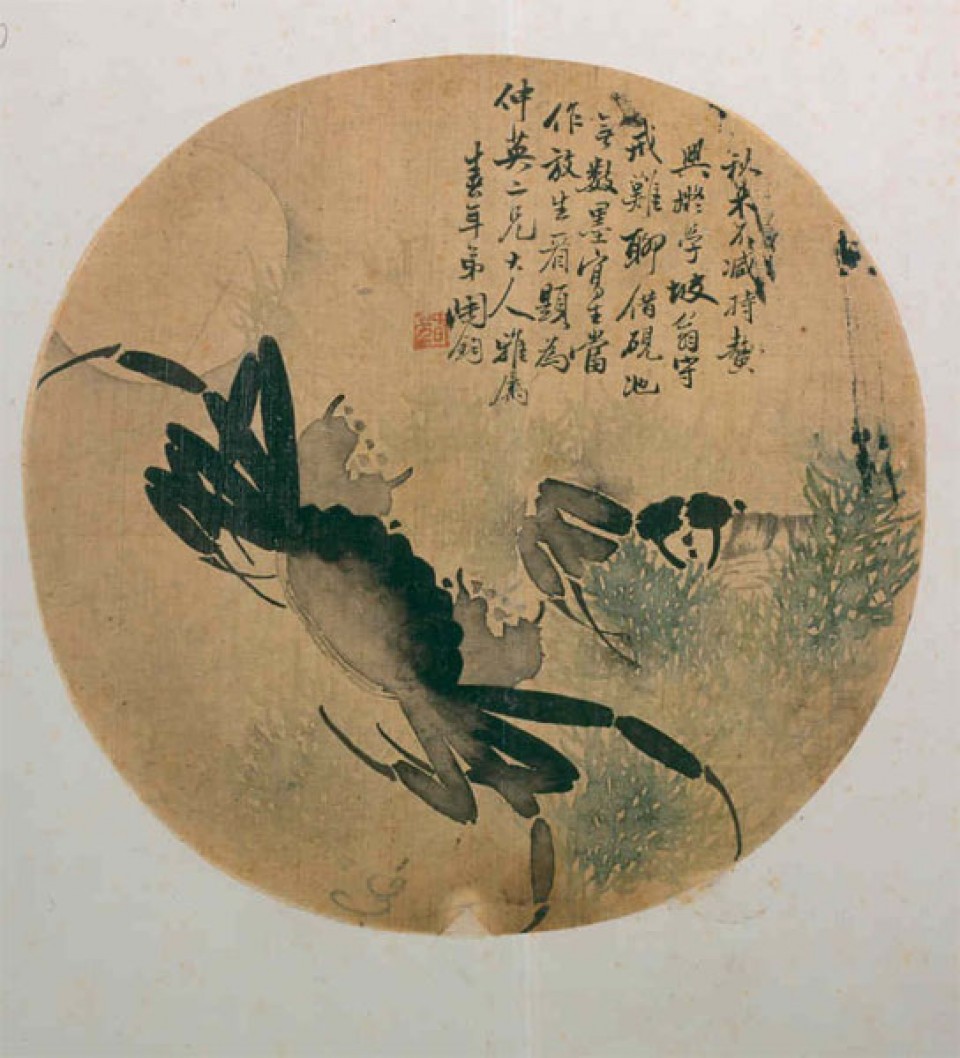 秋来不減持螯
興擬學坡翁守
戒難聊借硯池
無數墨寫生當
作放生看題為
仲英二兄大人雅属
年弟陶